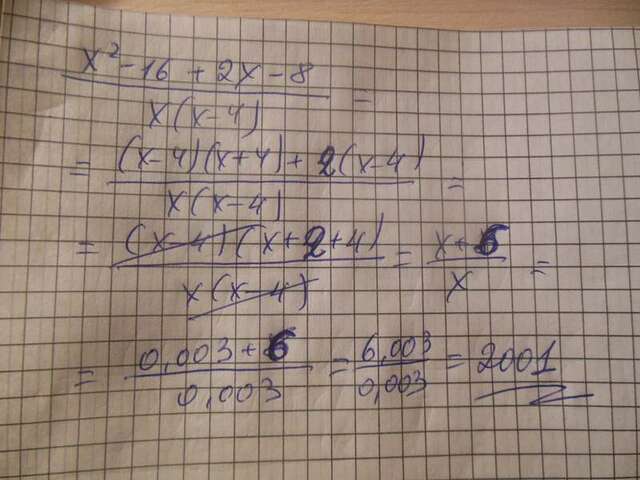 x² - 16 + 2x - 8 / x(x-4) =
= (x-4)(x+4) + 2(x-4) / x(x-4) =
= (x-4)(x+2+4) / x(x-4) = x+6 / x =
= 0,003+6 / 0,003 = 6,003 / 0,003 = 2001